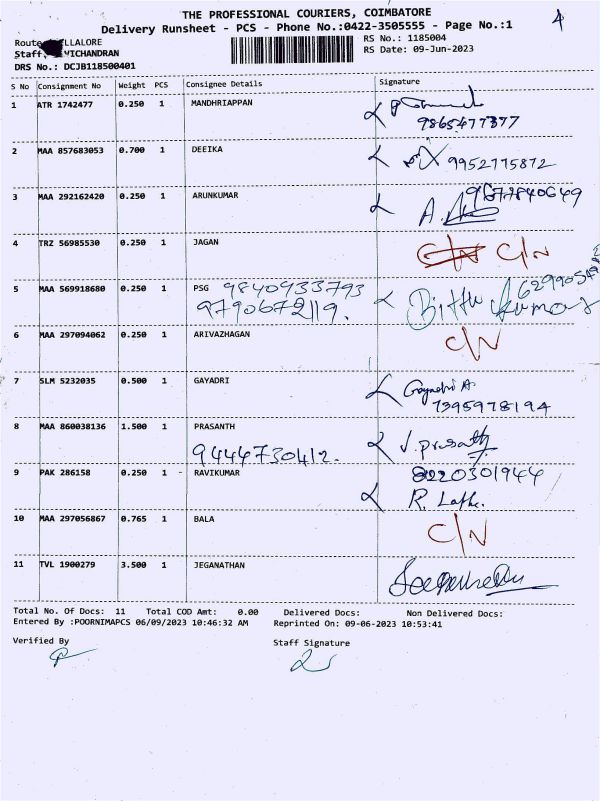 THE PROFESSIONAL COURIERS, COIMBATORE
4
Delivery Runsheet - PCS - Phone No.:0422-3505555 - Page No.:1
Route LLALORE
RS No.: 1185004
Staff VICHANDRAN
RS Date: 09-Jun-2023
DRS No.: DCJB118500401
S No Consignment No Weight PCS Consignee Details Signature
1 ATR 1742477 0.250 1 MANDHRIAPPAN
9865477377
2 MAA 857683053 0.700 1 DEEIKA
9952775872
3 MAA 292162420 0.250 1 ARUNKUMAR
9677840649
4 TRZ 56985530 0.250 1 JAGAN C/N C/N
5 MAA 569918680 0.250 1 PSG 9840933793
9790672119. Bittu Kumar
6 MAA 297094062 0.250 1 ARIVAZHAGAN C/N
7 SLM 5232035 0.500 1 GAYADRI Gayadri A
7395978194
8 MAA 860038136 1.500 1 PRASANTH
9444730412. J. prasath
9 PAK 286158 0.250 1 - RAVIKUMAR 8220301944
R.
10 MAA 297056867 0.765 1 BALA C/N
11 TVL 1900279 3.500 1 JEGANATHAN
Total No. Of Docs: 11 Total COD Amt: 0.00 Delivered Docs: Non Delivered Docs:
Entered By :POORNIMAPCS 06/09/2023 10:46:32 AM Reprinted On: 09-06-2023 10:53:41
Verified By Staff Signature